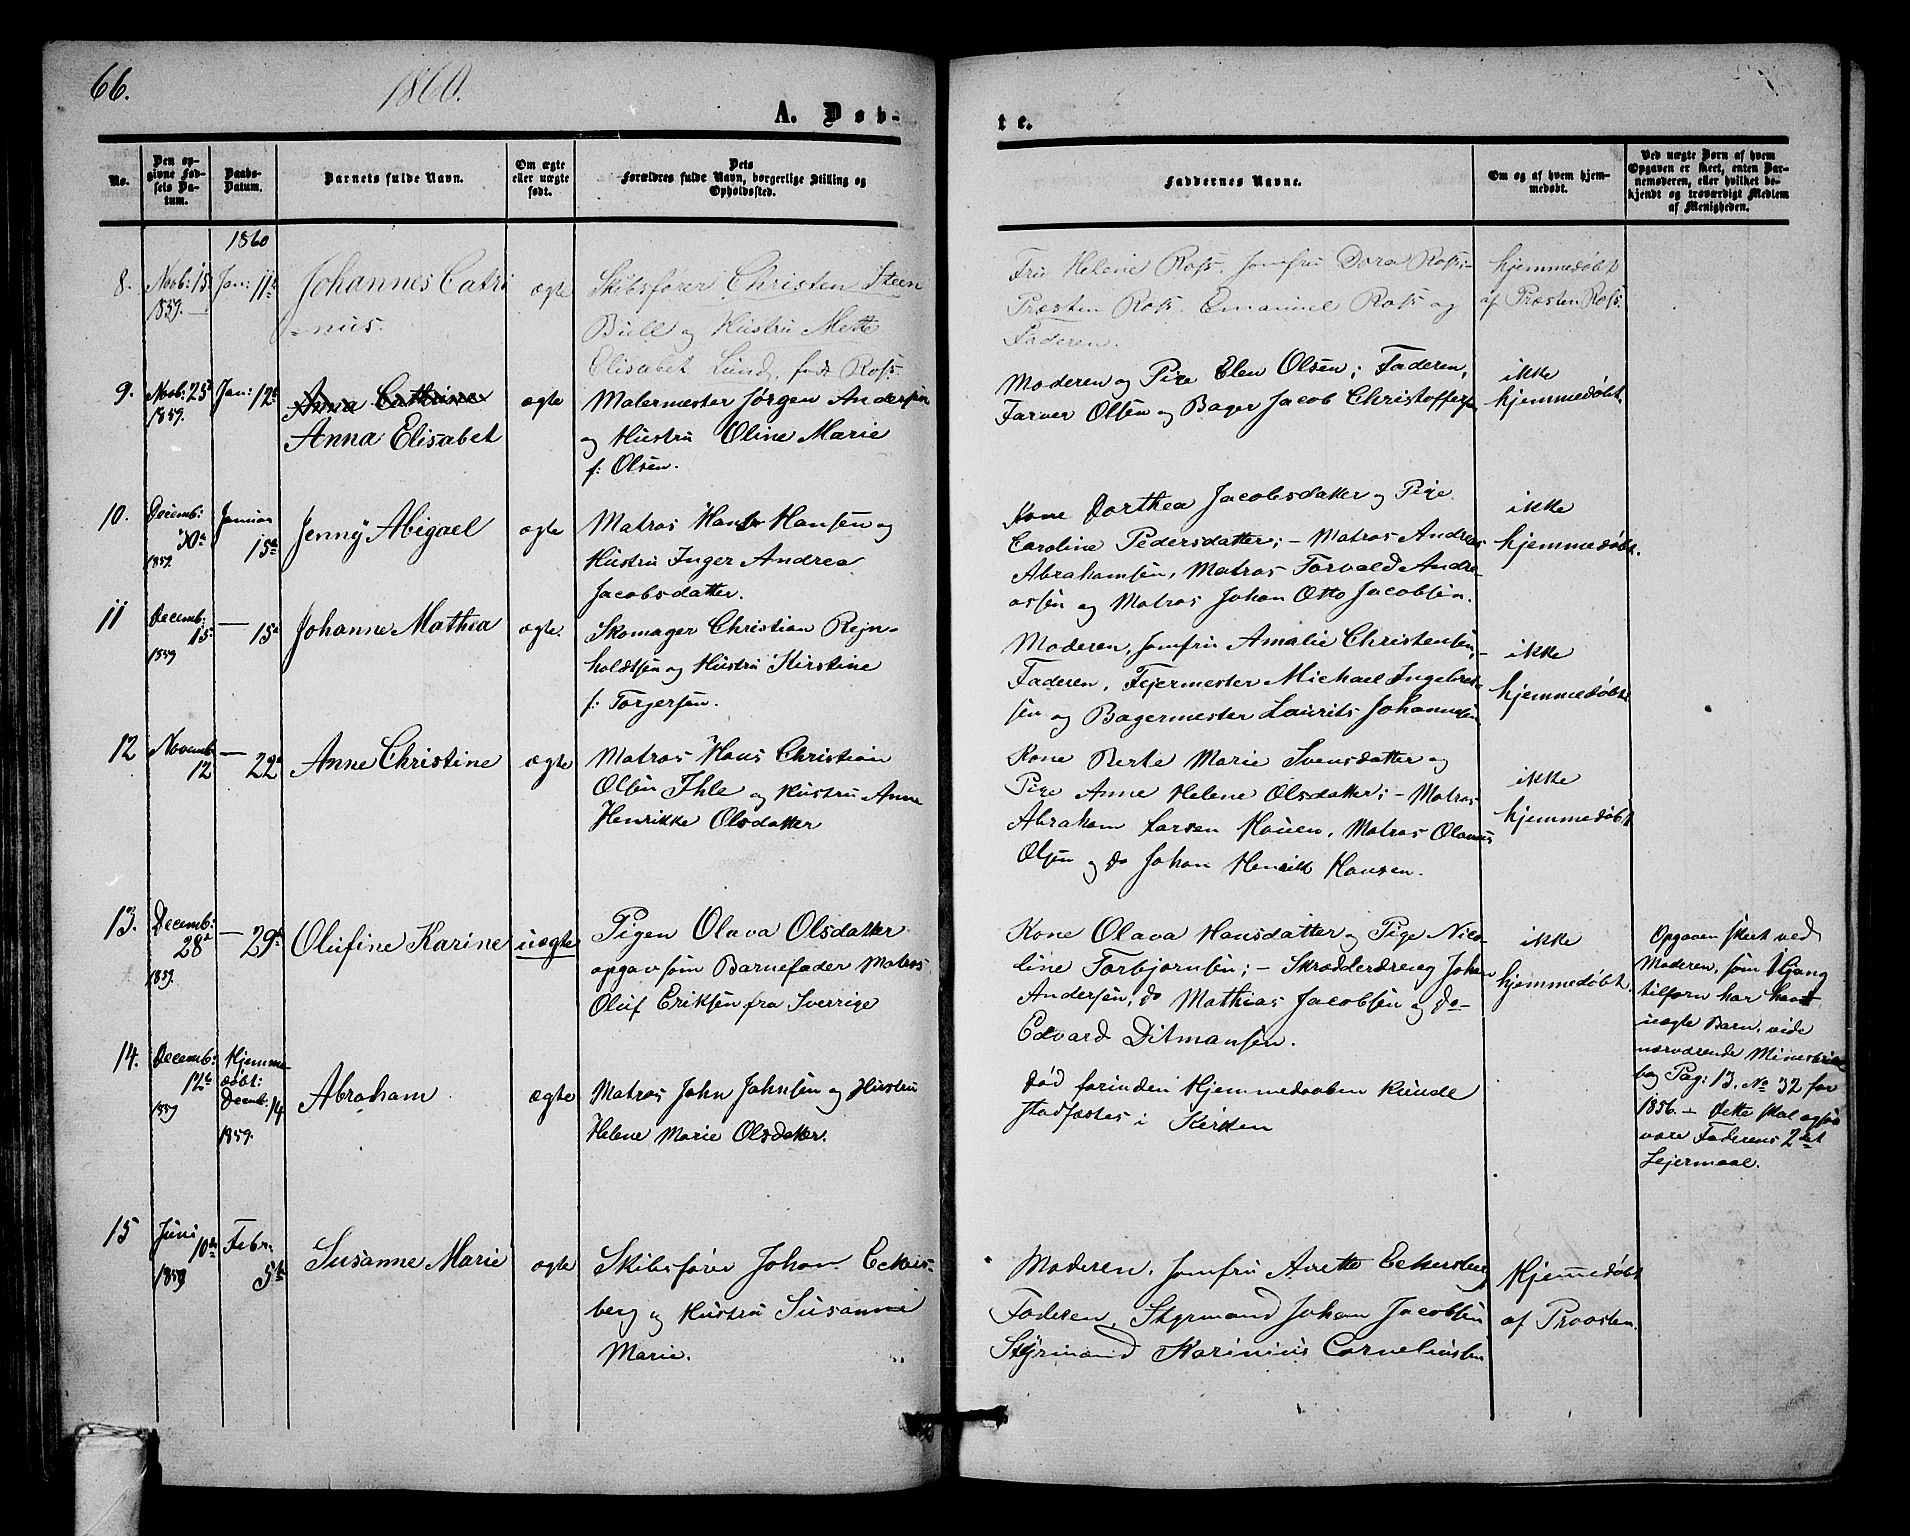 66.
1860.
A. Døb-
te.
No.
Den op-
givne Fød-
sels Da-
tum.
Daabs-
Datum.
Barnets fulde Navn.
Om ægte
eller uægte
født.
Dets
Forældres fulde Navn, borgerlige Stilling og
Opholdssted.
Faddernes Navne.
Om og af hvem hjem-
medøbt.
Ved uægte Børn af hvem
Opgaven er skeet, enten Bar-
nemoderen, eller hvilket be-
kjendt og troværdigt Medlem
af Menigheden.
1860
8.
Novb: 15
1859.
Jan: 11te
Johannes Catri
-nus.
ægte
Skibsfører Christen Steen
Bull og Hustru Mette
Elisabet Lund, född Ross.
Fru Helene Ross. Jomfru Dora Ross.-
Præsten Ross. Emanuel Ross og
Faderen.
hjemmedøbt
af Præsten Ross.
9.
Novb: 25d
1859.
Jan: 12te
Anna Cathrine
Anna Elisabet
ægte
Malermester Jørgen Andersen
og Hustru Oline Marie
f: Olsen.
Moderen og Pige Elen Olsen; Faderen,
Farver Olsen og Bager Jacob Christoffersen
ikke
hjemmedøbt.
10.
Decemb:
1859.
Januar
15de
Jenny Abigael
ægte
Matros Hans Hansen og
Hustru Inger Andrea
Jacobsdatter.
Kone Dorthea Jacobsdatter og Pige
Caroline Pedersdatter; - Matros Andreas
Abrahamsen, Matros Torvald Andre-
assen og Matros Johan Otto Jacobsen.
ikke
hjemmedøbt.
11
Decemb:
15d
1859
— 15d
Johanne Mathea
ægte.
Skomager Christian Rejn-
holdtsen og Hustru Kirstine
f: Torgersen.
Moderen, Jomfru Amalie Christensen,-
Faderen, Fejermester Michael Ingebret-
sen og Bagermester Laurits Johannesen
ikke
hjemmedøbt.
12
Novemb
12
— 22d
Anne Christine
ægte
Matros Hans Christian
Olsen Ihle og Hustru Anne
Henrikke Olsdatter
Kone Berte Marie Svensdatter og
Pige Anne Helene Olsdatter; - Matros
Abraham Larsen Hauen, Matros Olaus
Olsen og do Johan Henrik Hansen.
ikke
hjemmedøbt
13.
Decemb:
28d
1859.
— 29d
Olufine Karine
uægte
Pigen Olava Olsdatter
opgav som Barnefader Matros
Oluf Eriksen fra Sverrige
Kone Olava Hansdatter og Pige Nico-
line Torbjørnsen; - Skrædderdreng Johan
Andersen, do Mathias Jacobsen og do
Edvard Ditmansen.
ikke
hjemmedøbt.
Opgaven skeet ved
Moderen, som 1 Gang
tilforn har havt
uægte Barn, vide
nærværende Ministerial
bog Pag: 13. No 32 for
1856. - Dette skal også
være Faderens 2det
Lejermaal.
14.
Decemb:
12te
1859
Hjemme
døbt:
Decemb: 14
1859.
Abraham
ægte
Matros John Johnsen og Hustru
Helene Marie Olsdatter.
Død forinden Hjemmedaaben kunde
stadfæstes i Kirken
15
Juni
10de
1859
Febr.
5te
Susanne Marie
ægte
Skibsfører Johan Eckers-
berg og Hustru Susanne
Marie.
Moderen, Jomfru Anette Eckersberg
Faderen, Styrmand Johan Jacobsen
Styrmand Karinius Corneliussen
Hjemmedøbt
af Præsten.